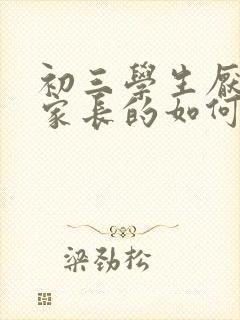 初三學生厭
家長的如何
梁劲松